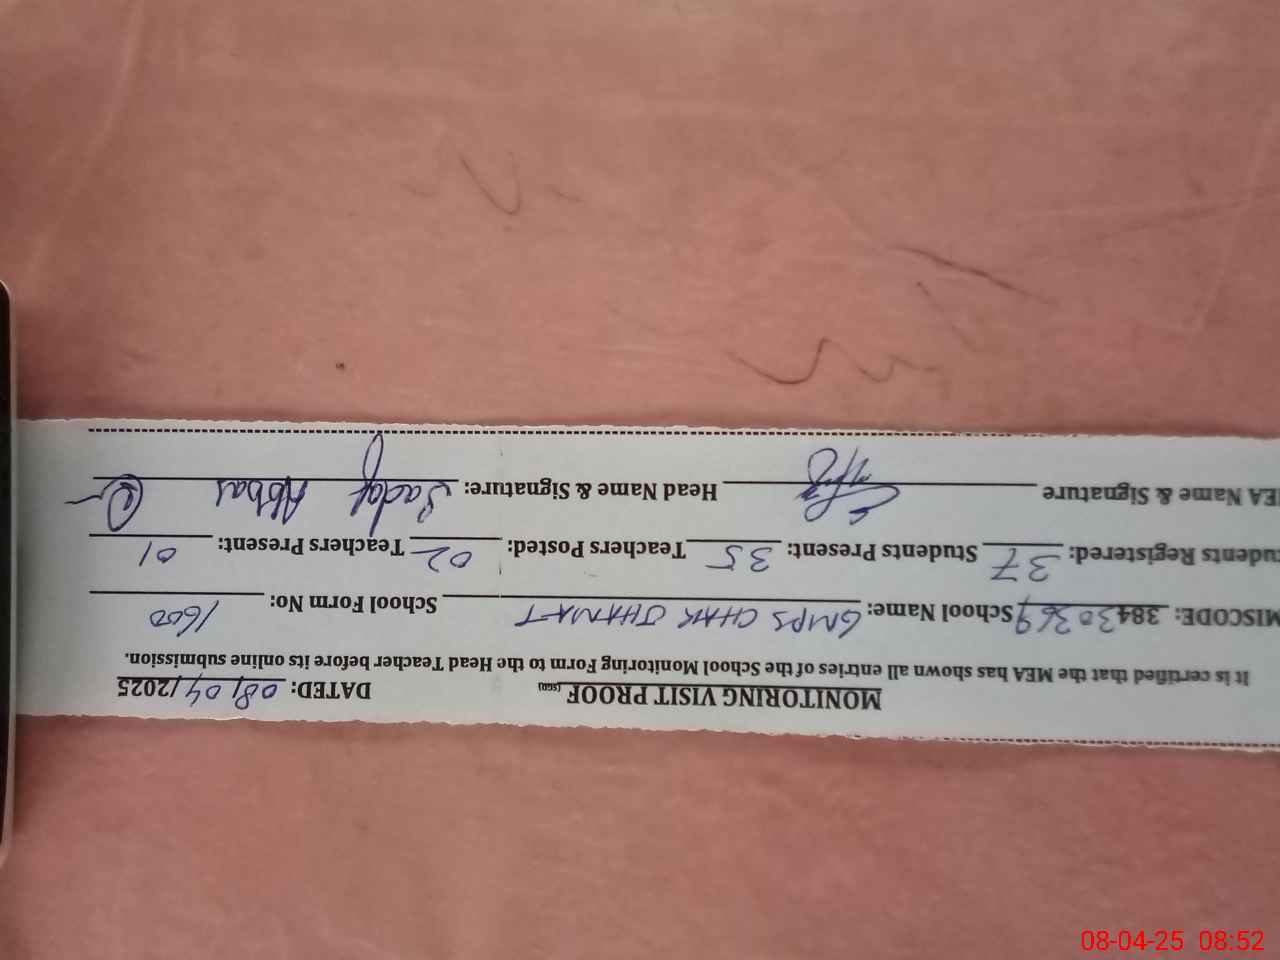 MONITORING VISIT PROOF (SGD) DATED: 08/04/2025
It is certified that the MEA has shown all entries of the School Monitoring Form to the Head Teacher before its online submission.
MISCODE: 38430369 School Name: GMPS CHAK JHAMAT School Form No: 1600
udents Registered: 37 Students Present: 35 Teachers Posted: 02 Teachers Present: 01
EA Name & Signature Head Name & Signature: Sadaf Abbas
08-04-25 08:52